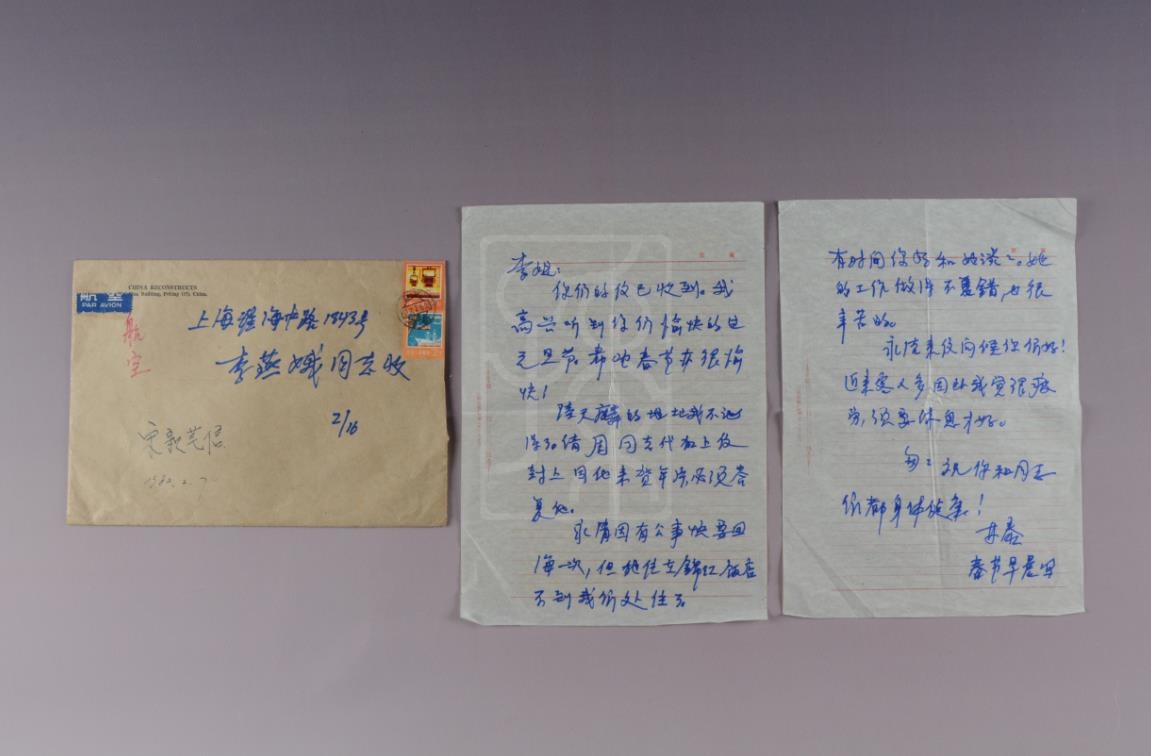 CHINA RECONSTRUCTS
Building, Peking (37), China.
航空
PAR AVION
航
空
上海淮海中路1843号
李燕娥同志收
2/16
1982.2.7
李姐：
你们的信已收到。我
高兴听到你们愉快的过
元旦节希望春节亦很愉
快！
陆天麟的地址我不记
得了请周同志代加上信
封上因他来贺年片必须答
复他。
永清因有公事快要回
海一次，但她住在錦江饭店
不到我们处住了
有时间你好和她谈谈。她
的工作做得不差错，也很
辛苦的。
永洁来信问候你们好！
近来客人多因此我觉很疲
劳，须要休息才好。
匆匆祝你和同志
们都身体健康！
春节早晨写